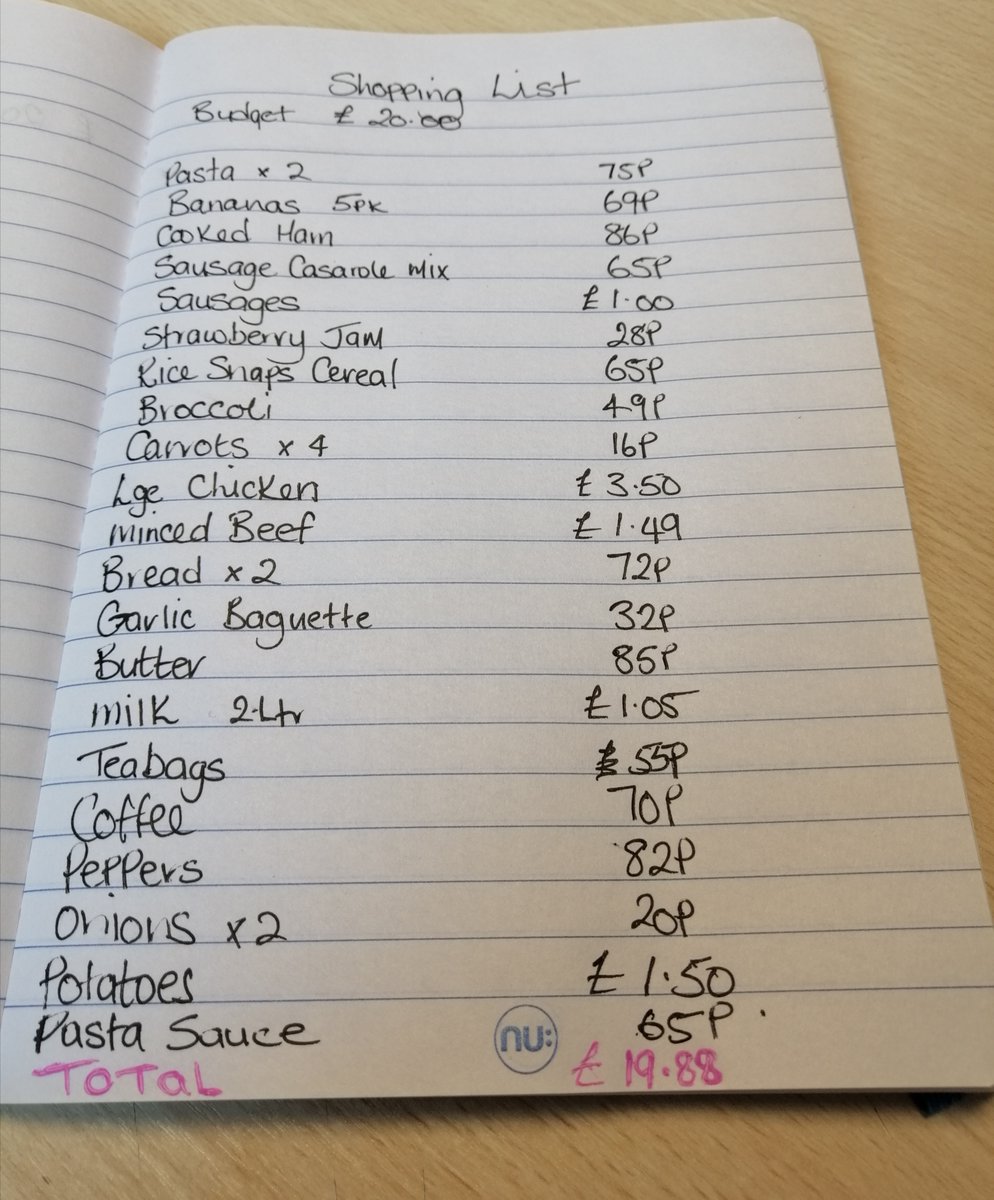 Shopping List
Budget £ 20.00
Pasta x 2 75P
Bananas 5PK 69P
Cooked Ham 86P
Sausage Casarole mix 65P
Sausages £1.00
Strawberry Jam 28P
Rice Snaps Cereal 65P
Broccoli 49P
Carrots x 4 16P
Lge Chicken £3.50
Minced Beef £1.49
Bread x 2 72P
Garlic Baguette 32P
Butter 85P
milk 2.Ltr £1.05
Teabags 55P
Coffee 70P
Peppers 82P
Onions x 2 20P
Potatoes £1.50
Pasta Sauce 65P.
nu:
TOTAL £19.88